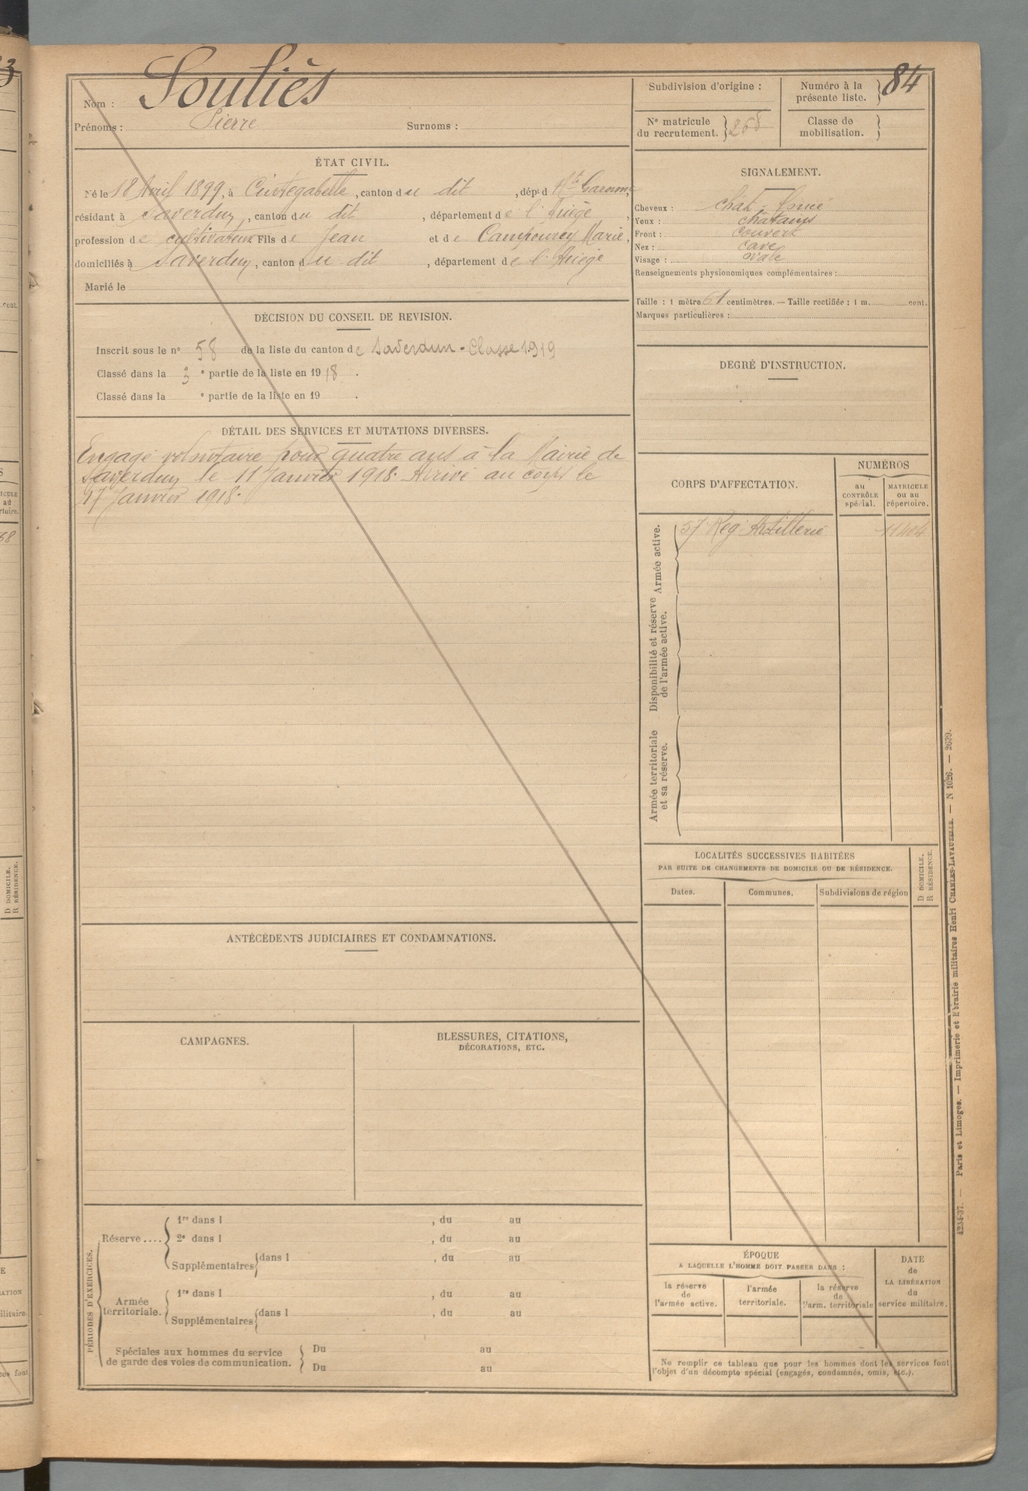 Nom : Souliès
Prénoms : Pierre Surnoms :
Subdivision d'origine :
Numéro à la présente liste. } 84
N° matricule du recrutement. } 268
Classe de mobilisation. }
ÉTAT CIVIL.
Né le 18 Avril 1899, à Cintegabelle, canton du dit, dépt d Hte Garonne
résidant à Saverdun, canton du dit, département de l'Ariège,
profession de cultivateur Fils de Jean et de Campourcy Marie,
domiciliés à Saverdun, canton du dit, département de l'Ariège
Marié le
SIGNALEMENT.
Cheveux : chat. foncé
Yeux : châtains
Front : couvert
Nez : cave
Visage : ovale
Renseignements physionomiques complémentaires :
Taille : 1 mètre 61 centimètres. — Taille rectifiée : 1 m. cent.
Marques particulières :
DÉCISION DU CONSEIL DE REVISION.
Inscrit sous le n° 58 de la liste du canton de Saverdun - Classe 1919
Classé dans la 3 e partie de la liste en 1918.
Classé dans la e partie de la liste en 19 .
DEGRÉ D'INSTRUCTION.
DÉTAIL DES SERVICES ET MUTATIONS DIVERSES.
Engagé volontaire pour quatre ans à la Mairie de
Saverdun le 11 Janvier 1918. Arrivé au corps le
17 Janvier 1918.
CORPS D'AFFECTATION.
NUMÉROS
au CONTRÔLE spécial.
MATRICULE ou au répertoire.
Armée active.
57 Rég Artillerie
Disponibilité et réserve de l'armée active.
Armée territoriale et sa réserve.
LOCALITÉS SUCCESSIVES HABITÉES
PAR SUITE DE CHANGEMENTS DE DOMICILE OU DE RÉSIDENCE.
Dates. Communes. Subdivisions de région
D DOMICILE.
R RÉSIDENCE.
ANTÉCÉDENTS JUDICIAIRES ET CONDAMNATIONS.
CAMPAGNES.
BLESSURES, CITATIONS,
DÉCORATIONS, ETC.
PÉRIODES D'EXERCICES.
Réserve....
1re dans l , du au
2e dans l , du au
Supplémentaires {dans l , du au
Armée territoriale.
1re dans l , du au
Supplémentaires {dans l , du au
Spéciales aux hommes du service
de garde des voies de communication.
Du au
Du au
ÉPOQUE
A LAQUELLE L'HOMME DOIT PASSER DANS :
la réserve de l'armée active.
l'armée territoriale.
la réserve de l'arm. territoriale
DATE de LA LIBÉRATION du service militaire.
Ne remplir ce tableau que pour les hommes dont les services font
l'objet d'un décompte spécial (engagés, condamnés, omis, etc.).
Paris et Limoges. — Imprimerie et librairie militaires Henri CHARLES-LAVAUZELLE. — N 1026. —